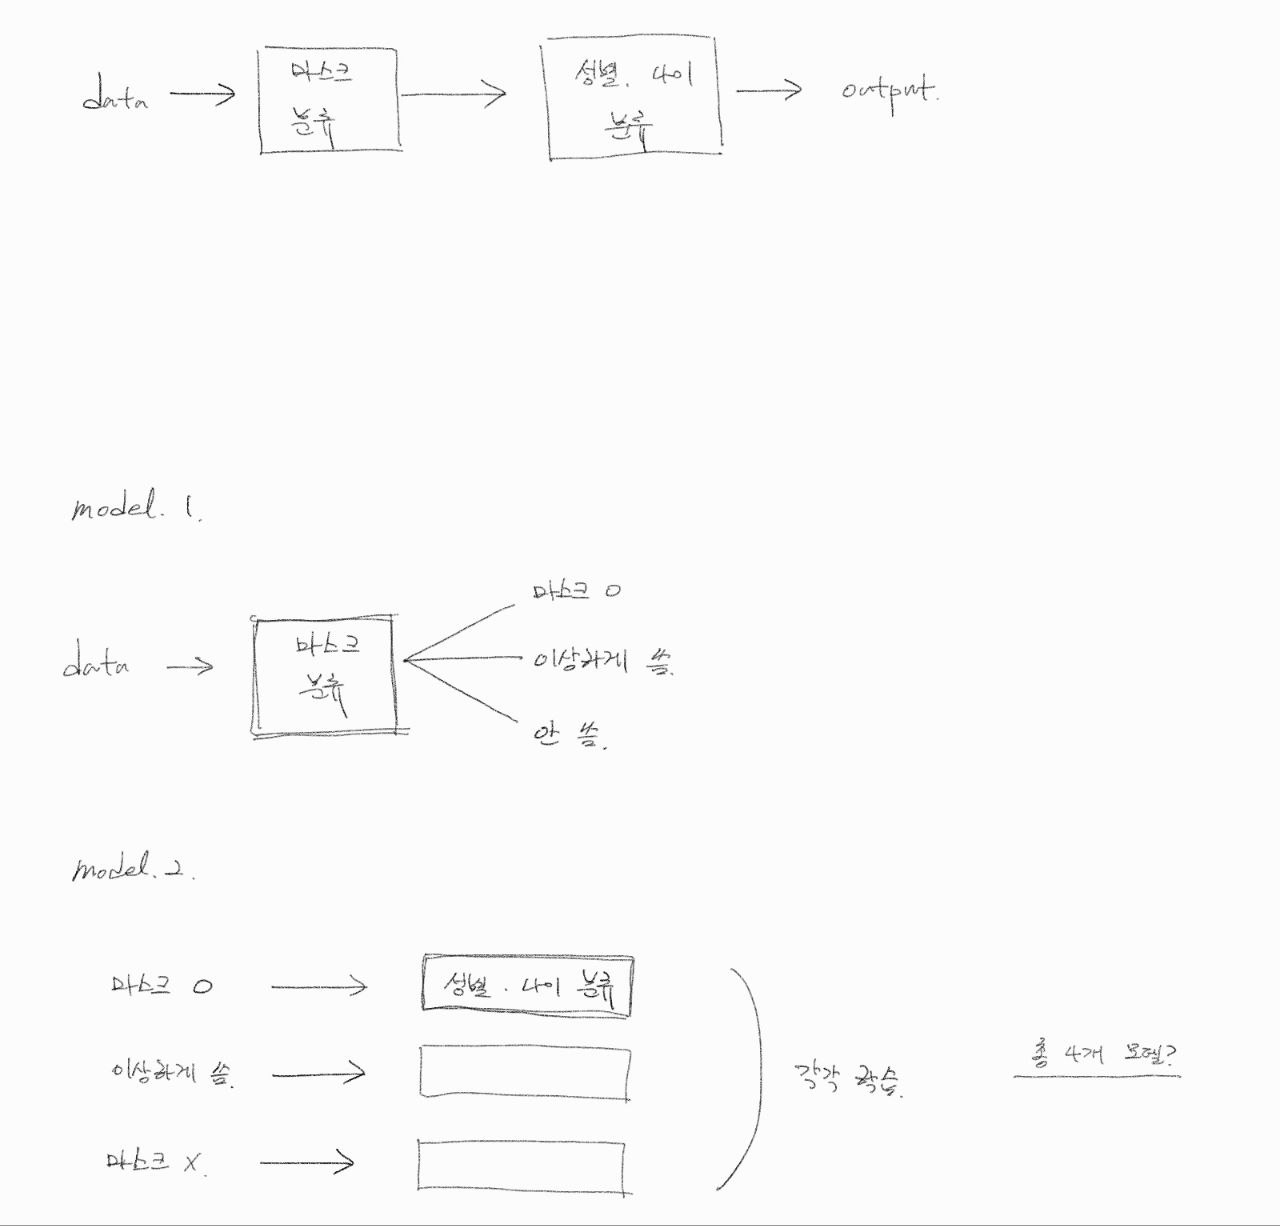 data → 마스크 분류 → 성별. 나이 분류 → output.
model. 1.
data → 마스크 분류
마스크 O
이상하게 씀.
안 씀.
model. 2.
마스크 O → 성별. 나이 분류
이상하게 씀. →
마스크 X. →
각각 학습.
총 4개 모델?